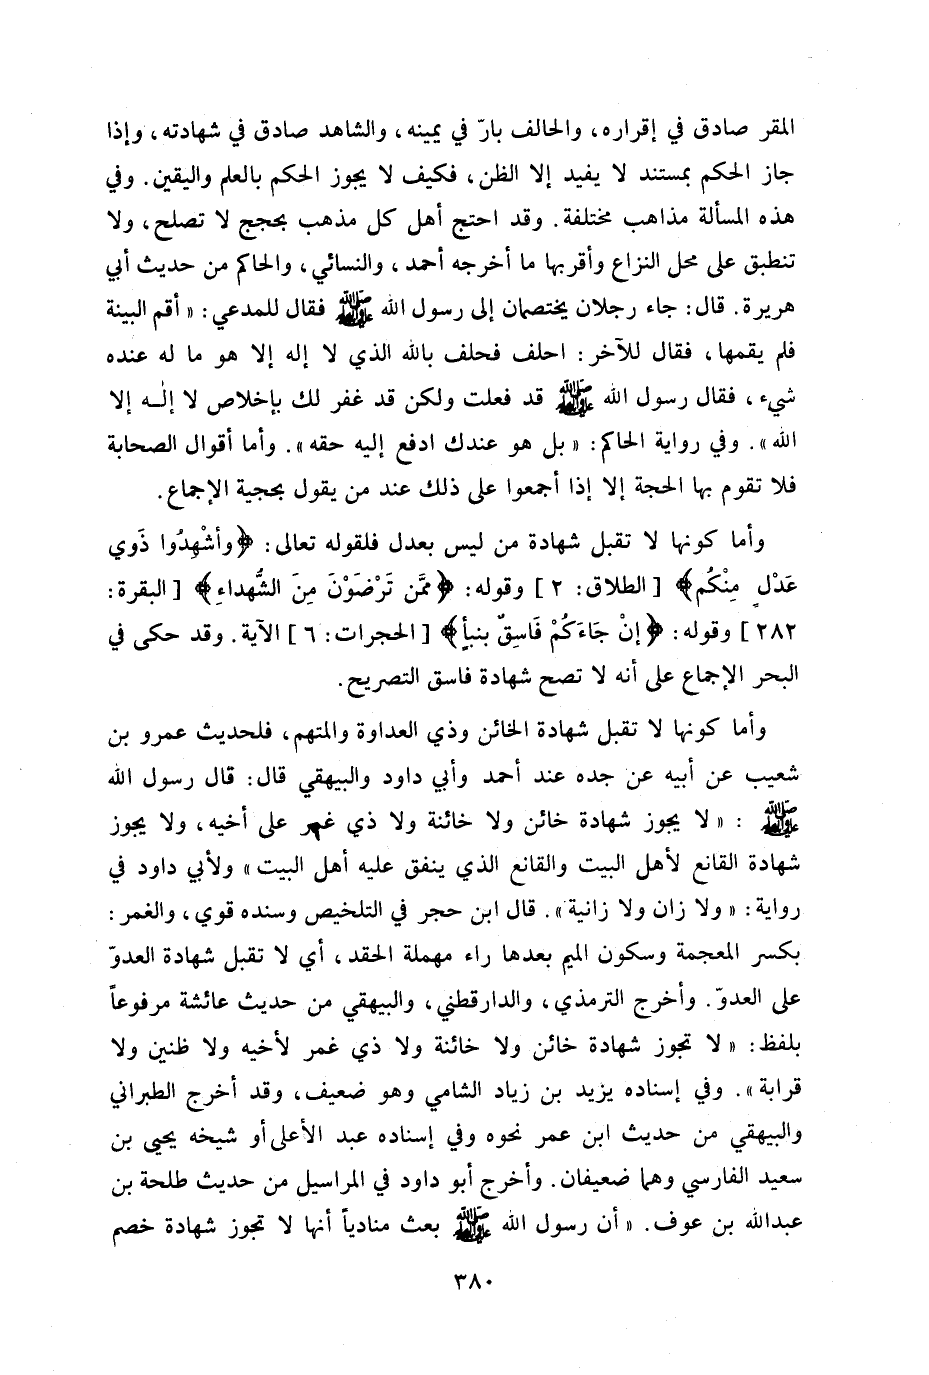 المقر صادق في إقراره، والحالف بارّ في يمينه، والشاهد صادق في شهادته، وإذا
جاز الحكم بمستند لا يفيد إلا الظن، فكيف لا يجوز الحكم بالعلم واليقين. وفي
هذه المسألة مذاهب مختلفة. وقد احتج أهل كل مذهب بحجج لا تصلح، ولا
تنطبق على محل النزاع وأقربها ما أخرجه أحمد، والنسائي، والحاكم من حديث أبي
هريرة. قال: جاء رجلان يختصمان إلى رسول الله ﷺ فقال للمدعي: «أقم البينة
فلم يقمها، فقال للآخر: احلف فحلف بالله الذي لا إله إلا هو ما له عنده
شيء، فقال رسول الله ﷺ قد فعلت ولكن قد غفر لك بإخلاص لا إلٰـه إلا
الله». وفي رواية الحاكم: «بل هو عندك ادفع إليه حقه». وأما أقوال الصحابة
فلا تقوم بها الحجة إلا إذا أجمعوا على ذلك عند من يقول بحجية الإجماع.
وأما كونها لا تقبل شهادة من ليس بعدل فلقوله تعالى: ﴿وأشْهِدُوا ذَوي
عَدْلٍ مِنْكُم﴾ [الطلاق: ٢] وقوله: ﴿ممَّن تَرْضَوْنَ مِنَ الشُّهداءِ﴾ [البقرة:
٢٨٢] وقوله: ﴿إنْ جَاءَكُمْ فَاسِقٌ بنبأٍ﴾ [الحجرات: ٦] الآية. وقد حكى في
البحر الإجماع على أنه لا تصح شهادة فاسق التصريح.
وأما كونها لا تقبل شهادة الخائن وذي العداوة والمتهم، فلحديث عمرو بن
شعيب عن أبيه عن جده عند أحمد وأبي داود والبيهقي قال: قال رسول الله
ﷺ: «لا يجوز شهادة خائن ولا خائنة ولا ذي غمر على أخيه، ولا يجوز
شهادة القانع لأهل البيت والقانع الذي ينفق عليه أهل البيت» ولأبي داود في
رواية: «ولا زان ولا زانية». قال ابن حجر في التلخيص وسنده قوي، والغمر:
بكسر المعجمة وسكون الميم بعدها راء مهملة الحقد، أي لا تقبل شهادة العدوّ
على العدوّ. وأخرج الترمذي، والدارقطني، والبيهقي من حديث عائشة مرفوعاً
بلفظ: «لا تجوز شهادة خائن ولا خائنة ولا ذي غمر لأخيه ولا ظنين ولا
قرابة». وفي إسناده يزيد بن زياد الشامي وهو ضعيف، وقد أخرج الطبراني
والبيهقي من حديث ابن عمر نحوه وفي إسناده عبد الأعلى أو شيخه يحيى بن
سعيد الفارسي وهما ضعيفان. وأخرج أبو داود في المراسيل من حديث طلحة بن
عبدالله بن عوف. «أن رسول الله ﷺ بعث منادياً أنها لا تجوز شهادة خصم
٣٨٠